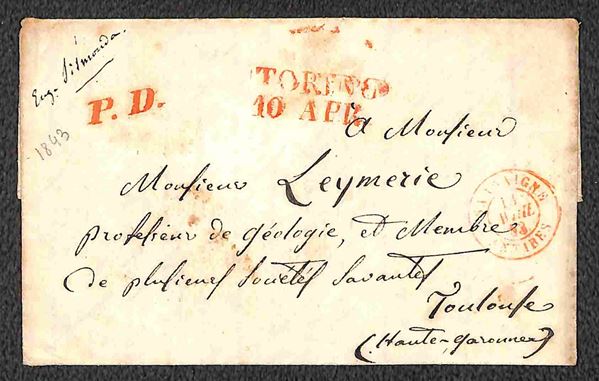 Eug. Sismonda.
1843
P. D.
TORINO
10 APR.
A Monsieur
Monsieur Leymerie
professeur de géologie, et Membre
de plusieurs Sociétés Savantes
Toulouse
(Haute-Garonne)
SARDAIGNE
43